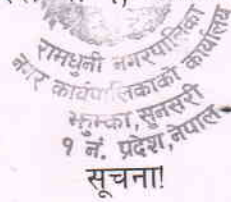 रामधुनी नगरपालिका
नगर कार्यपालिकाको कार्यालय
झुम्का, सुनसरी
१ नं. प्रदेश, नेपाल
सूचना!